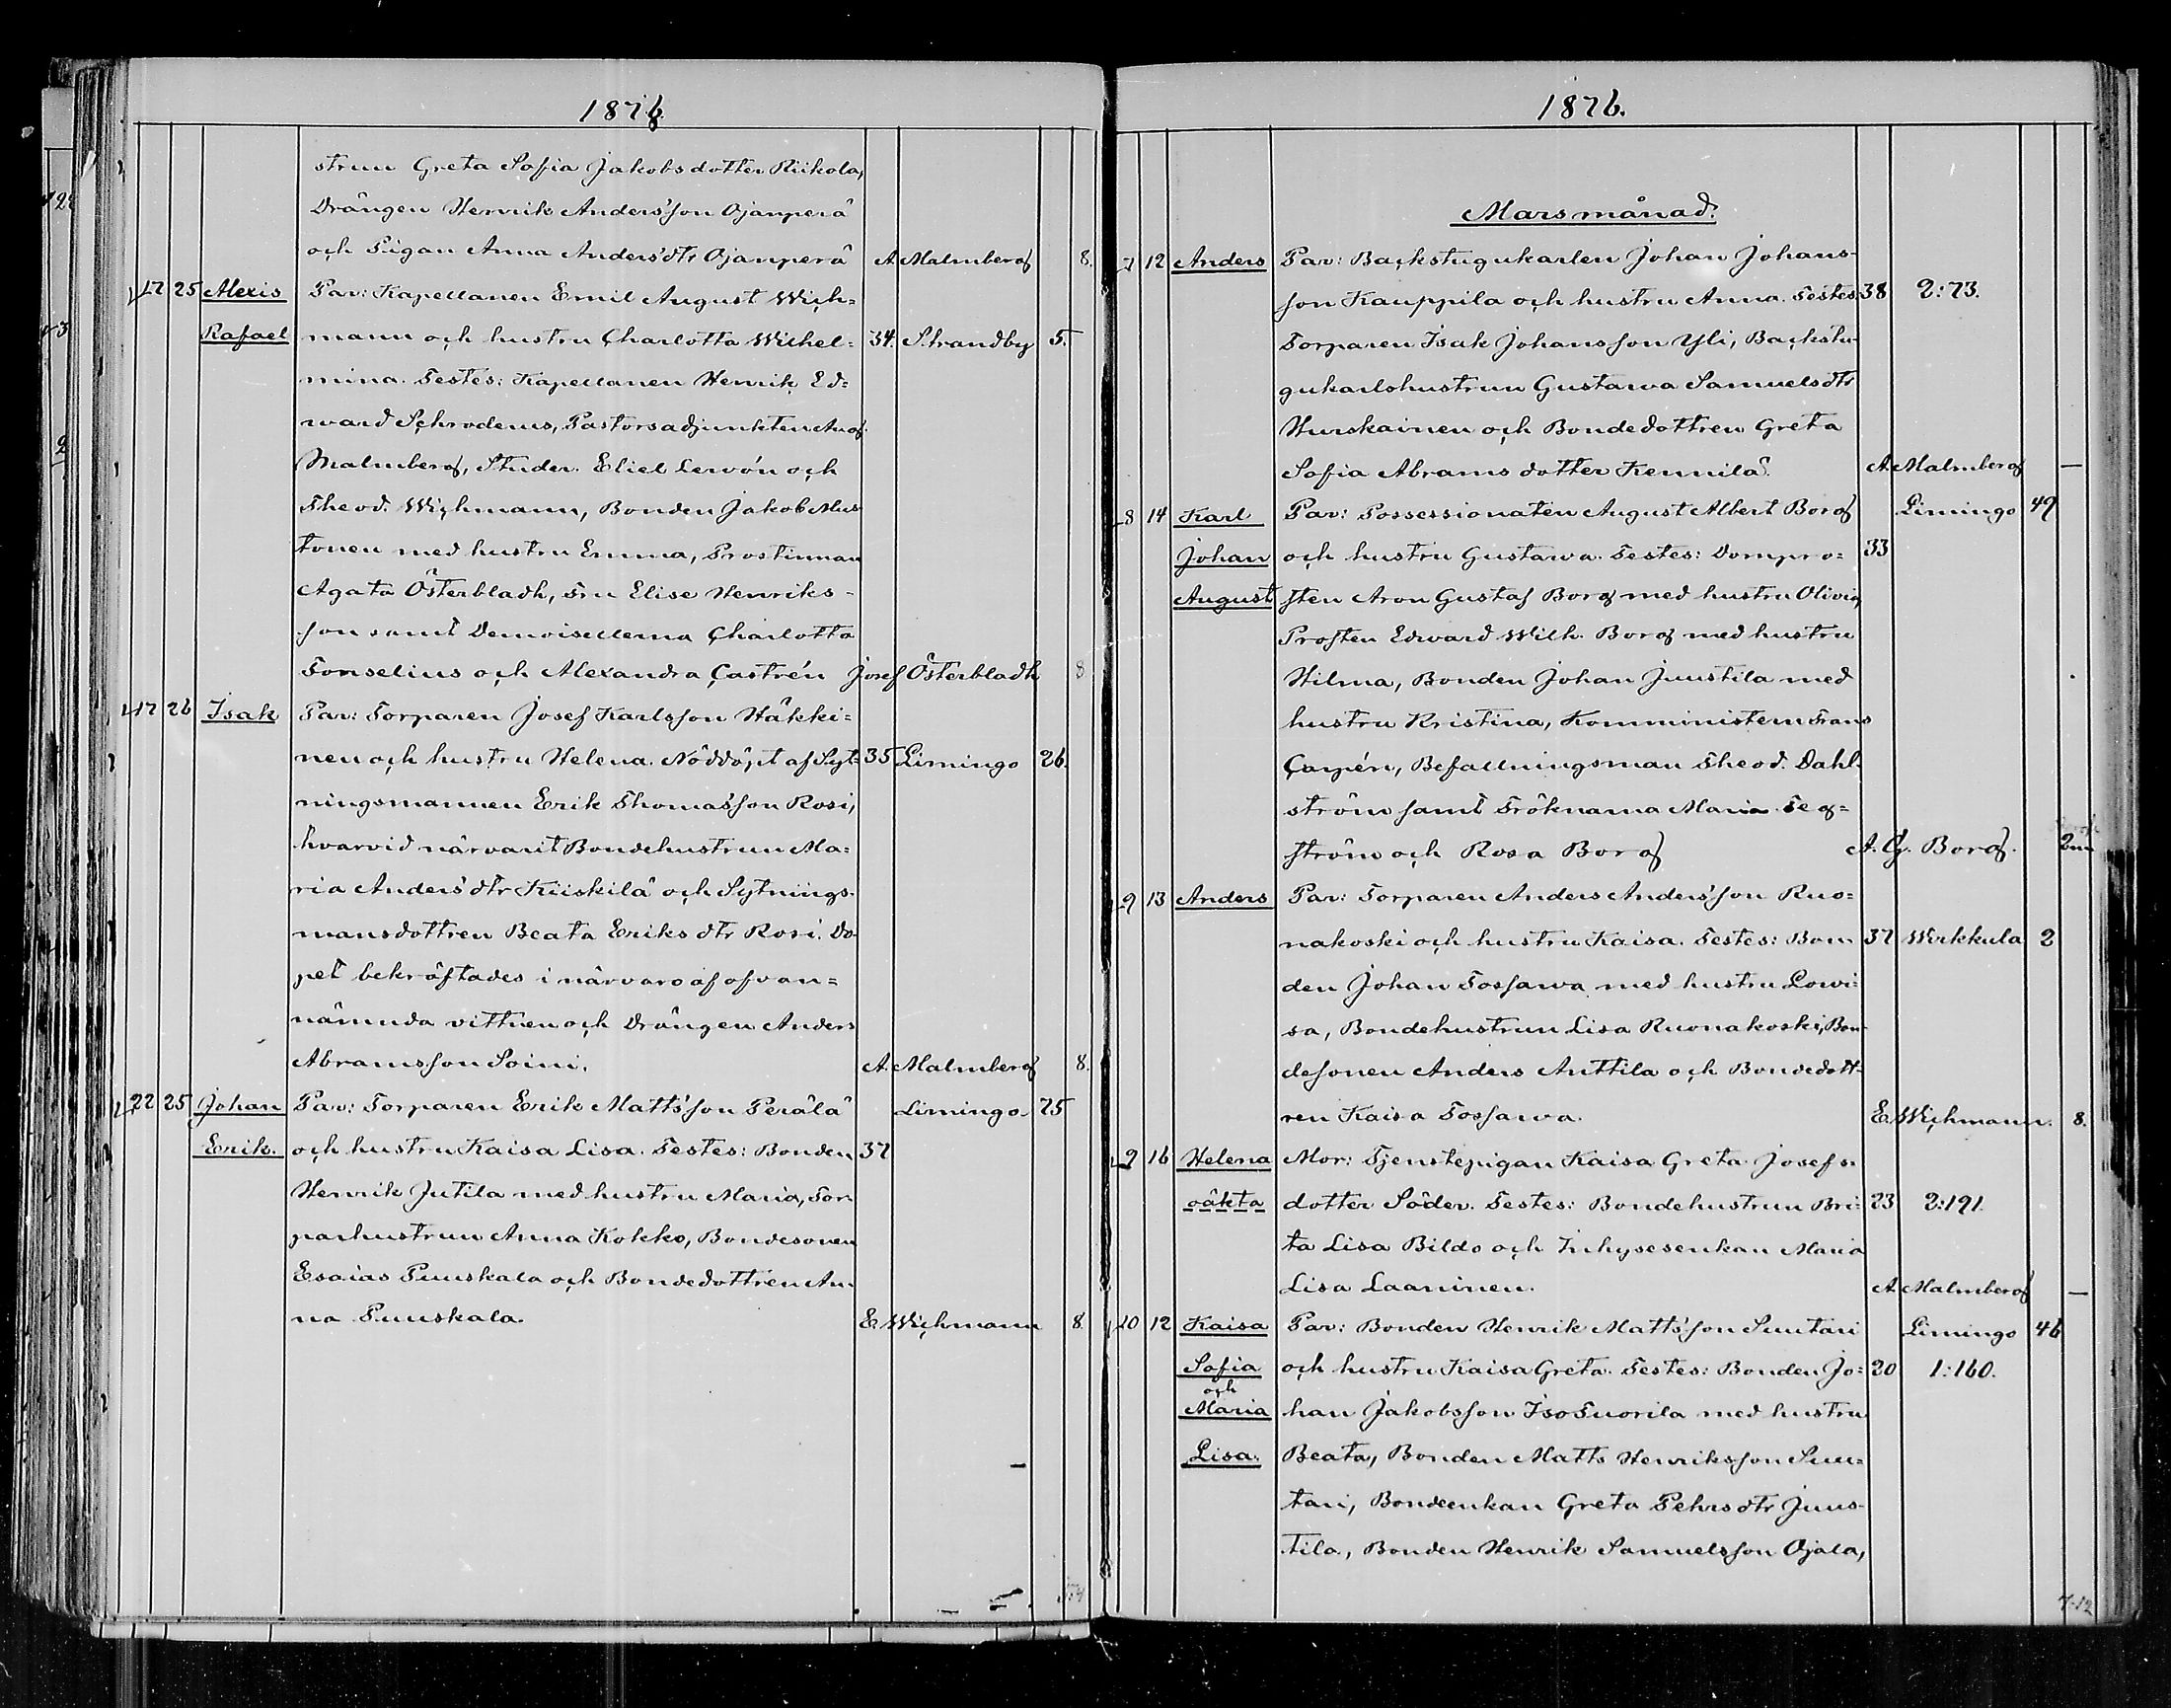 1876.
strun Greta Sofia Jakobsdotter Riikola,
Drängen Henrik Anders'son Ojanperä
och Pigan Anna Anders'dtr Ojanperä A. Malmberg 8.
17 25 Alexis Par: Kapellanen Emil August Wich=
Rafael mann och hustru Charlotta Wilhel= 34. Strandby 5.
mina. Testes: Kapellanen Henrik Ed=
ward Schroderus, Pastorsadjunkten Aug.
Malmberg, Studer. Eliel Lewón och
Theod. Wichmann, Bonden Jakob Mus
tonen med hustru Emma, Prostinnan
Agata Österbladh, Fru Elise Henriks-
son samt Demoisellerna Charlotta
Fonselius och Alexandra Castrén Josef Österbladh 8
17 26 Isak Par: Torparen Josef Karlsson Häkki=
nen och hustru Helena. Nöddöpt af Syt= 35 Limingo 26.
ningsmannen Erik Thomas'son Rosi,
hvarvid närvarit Bondehustrun Ma=
ria Anders'dtr Kiiskilä och Sytnings-
mansdottren Beata Eriksdtr Rosi. Do-
pet bekräftades i närvaro af ofvan=
nämnda vittnen och Drängen Anders
Abramsson Soini. A. Malmberg 8.
22 25 Johan Par: Torparen Erik Matts'son Perälä Limingo 25
Erik. och hustru Kaisa Lisa. Testes: Bonden 37
Henrik Jutila med hustru Maria, Tor-
parhustrun Anna Kokko, Bondesonen
Esaias Puuskala och Bondedottren An-
na Puuskala. E. Wichmann 8
1876.
Mars månad.
7 12 Anders Par: Backstugukarlen Johan Johans-
son Kauppila och hustru Anna. Testes: 38 2:73.
Torparen Isak Johansson Yli, Backstu-
gukarlshustrun Gustawa Samuelsdtr
Hurskainen och Bondedottren Greta
Sofia Abramsdotter Kennilä. A. Malmberg —
8 14 Karl Par: Possessionaten August Albert Borg Limingo 49
Johan och hustru Gustawa. Testes: Dompro= 33
August sten Aron Gustaf Borg med hustru Olivia,
Prosten Edward Wilh. Borg med hustru
Hilma, Bonden Johan Juustila med
hustru Kristina, Komministern Frans
Carpén, Befallningsman Theod. Dahl-
ström samt Fröknarna Maria Teg=
ström och Rosa Borg A. G. Borg.
9 13 Anders Par: Torparen Anders Anders'son Ruo=
nakoski och hustru Kaisa. Testes: Bon- 37 Wirkkula 2
den Johan Tossawa med hustru Lowi=
sa, Bondehustrun Lisa Ruonakoski, Bon-
desonen Anders Anttila och Bondedott-
ren Kaisa Tossawa. E. Wichmann. 8.
9 16 Helena Mor: Tjenstepigan Kaisa Greta Josefs-
oäkta dotter Söder. Testes: Bondehustrun Bri= 23 2:191.
ta Lisa Bildo och Inhysesenkan Maria
Lisa Laaninen. A. Malmberg —
10 12 Kaisa Par: Bonden Henrik Matts'son Suutari Limingo 46
Sofia och hustru Kaisa Greta. Testes: Bonden Jo= 20 1:160.
och
Maria han Jakobsson Iso Tuorila med hustru
Lisa. Beata, Bonden Matts Henriksson Suu=
tari, Bondeenkan Greta Pehrsdtr Juus-
tila, Bonden Henrik Samuelsson Ojala,